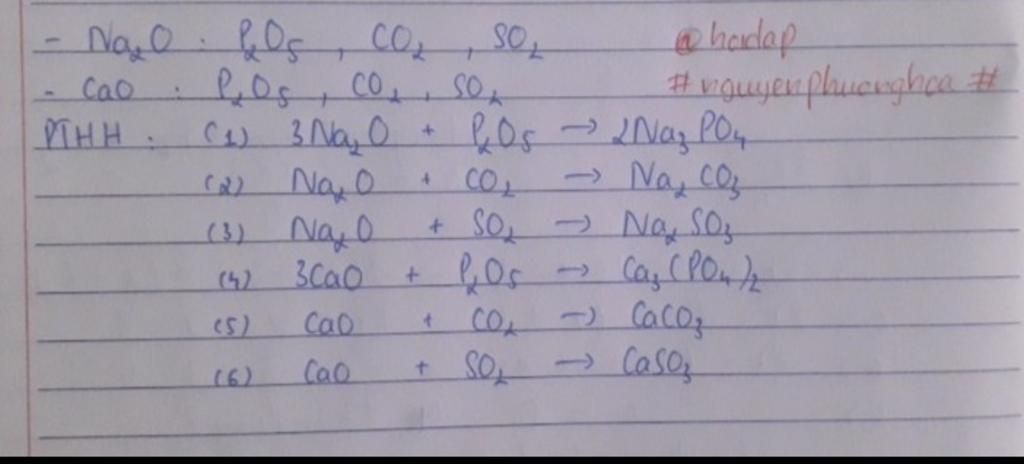 - Na₂O : P₂O₅ , CO₂ , SO₂ @hoidap
- CaO : P₂O₅ , CO₂ , SO₂ #nguyenphuonghoa #
PTHH : (1) 3Na₂O + P₂O₅ → 2Na₃PO₄
(2) Na₂O + CO₂ → Na₂CO₃
(3) Na₂O + SO₂ → Na₂SO₃
(4) 3CaO + P₂O₅ → Ca₃(PO₄)₂
(5) CaO + CO₂ → CaCO₃
(6) CaO + SO₂ → CaSO₃